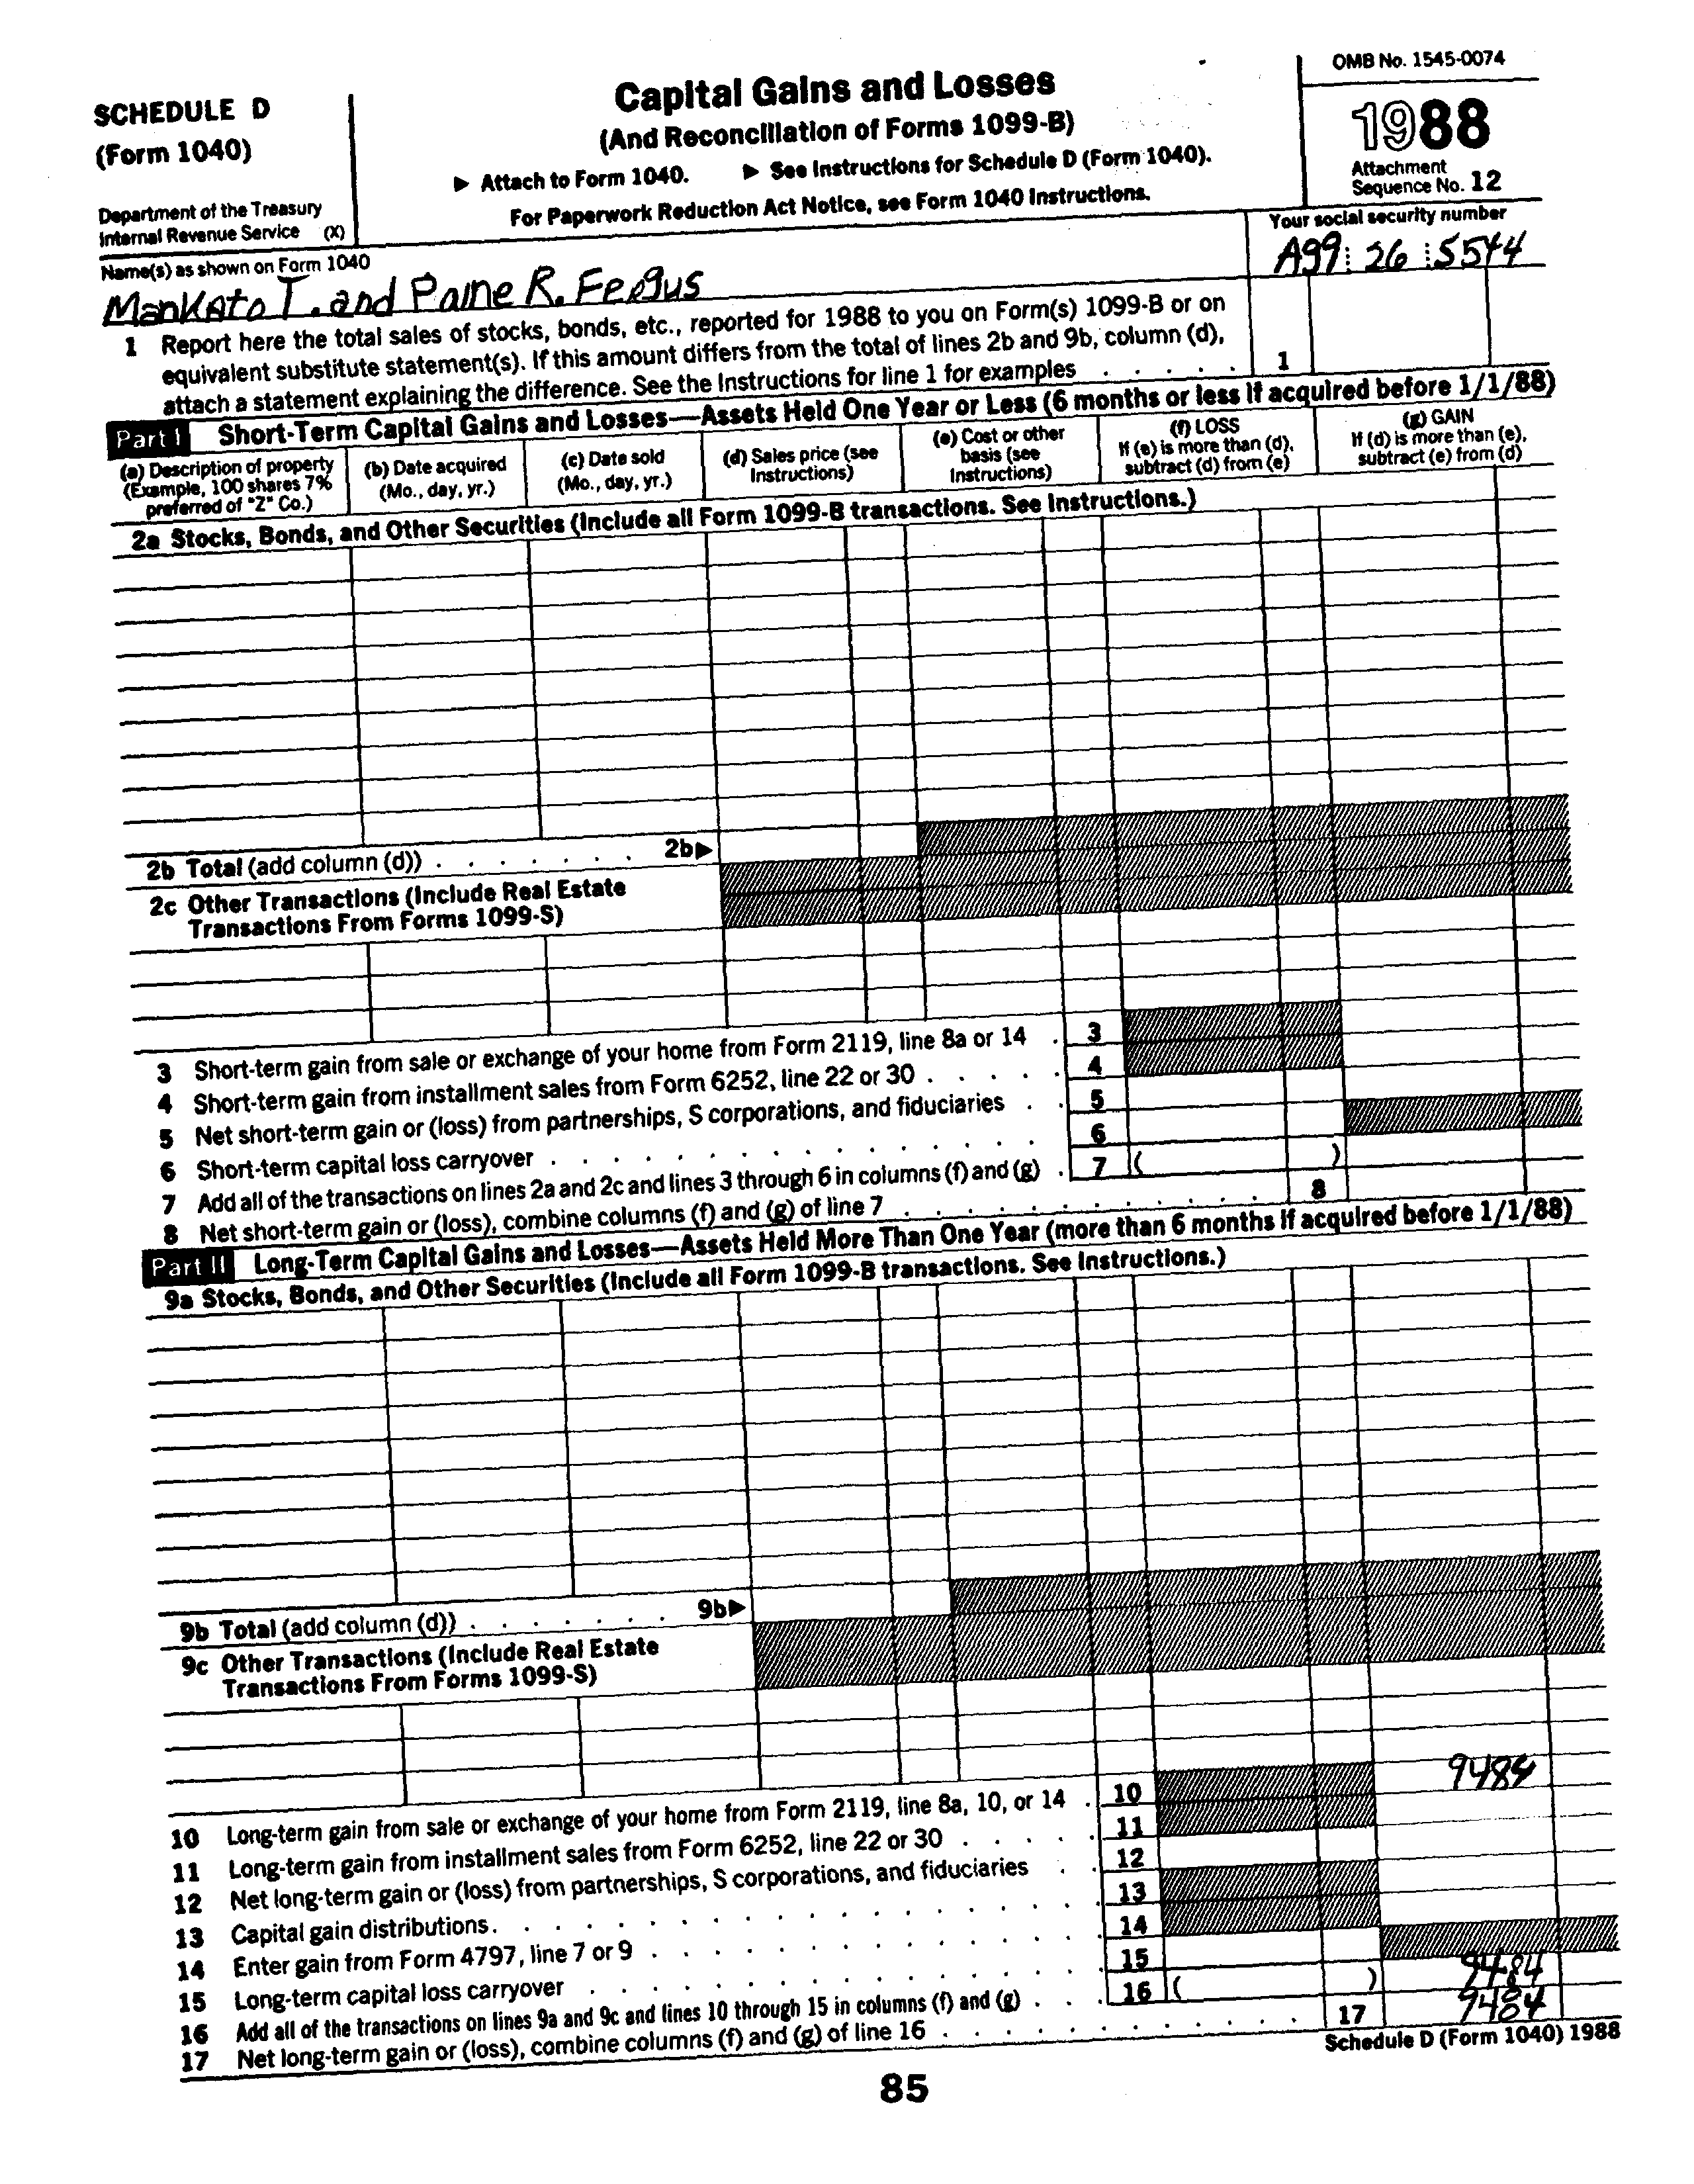 SCHEDULE D
(Form 1040)
Department of the Treasury
Internal Revenue Service (X)
Capital Gains and Losses
(And Reconciliation of Forms 1099-B)
▶ Attach to Form 1040. ▶ See Instructions for Schedule D (Form 1040).
For Paperwork Reduction Act Notice, see Form 1040 Instructions.
OMB No. 1545-0074
1988
Attachment
Sequence No. 12
Name(s) as shown on Form 1040
Mankato T. and Paine R. Fergus
Your social security number
A99 26 5544
1 Report here the total sales of stocks, bonds, etc., reported for 1988 to you on Form(s) 1099-B or on
equivalent substitute statement(s). If this amount differs from the total of lines 2b and 9b, column (d),
attach a statement explaining the difference. See the Instructions for line 1 for examples . . . . . 1
Part I Short-Term Capital Gains and Losses—Assets Held One Year or Less (6 months or less if acquired before 1/1/88)
(a) Description of property
(Example, 100 shares 7%
preferred of "Z" Co.)
(b) Date acquired
(Mo., day, yr.)
(c) Date sold
(Mo., day, yr.)
(d) Sales price (see
Instructions)
(e) Cost or other
basis (see
Instructions)
(f) LOSS
If (e) is more than (d),
subtract (d) from (e)
(g) GAIN
If (d) is more than (e),
subtract (e) from (d)
2a Stocks, Bonds, and Other Securities (Include all Form 1099-B transactions. See Instructions.)
2b Total (add column (d)) . . . . . . . 2b▶
2c Other Transactions (Include Real Estate
Transactions From Forms 1099-S)
3 Short-term gain from sale or exchange of your home from Form 2119, line 8a or 14 . 3
4 Short-term gain from installment sales from Form 6252, line 22 or 30 . . . . . 4
5 Net short-term gain or (loss) from partnerships, S corporations, and fiduciaries . . 5
6 Short-term capital loss carryover . . . . . . . . . . . . . . 6
7 Add all of the transactions on lines 2a and 2c and lines 3 through 6 in columns (f) and (g) . 7 ( )
8 Net short-term gain or (loss), combine columns (f) and (g) of line 7 . . . . . . . . . . . 8
Part II Long-Term Capital Gains and Losses—Assets Held More Than One Year (more than 6 months if acquired before 1/1/88)
9a Stocks, Bonds, and Other Securities (Include all Form 1099-B transactions. See Instructions.)
9b Total (add column (d)) . . . . . . . 9b▶
9c Other Transactions (Include Real Estate
Transactions From Forms 1099-S)
10 Long-term gain from sale or exchange of your home from Form 2119, line 8a, 10, or 14 . 10 9484
11 Long-term gain from installment sales from Form 6252, line 22 or 30 . . . . . 11
12 Net long-term gain or (loss) from partnerships, S corporations, and fiduciaries . . 12
13 Capital gain distributions . . . . . . . . . . . . . . . . . . 13
14 Enter gain from Form 4797, line 7 or 9 . . . . . . . . . . . . . 14
15 Long-term capital loss carryover . . . . . . . . . . . . . . . 15
16 Add all of the transactions on lines 9a and 9c and lines 10 through 15 in columns (f) and (g) . . . 16 ( ) 9484
17 Net long-term gain or (loss), combine columns (f) and (g) of line 16 . . . . . . . . . . . . 17 9484
Schedule D (Form 1040) 1988
85